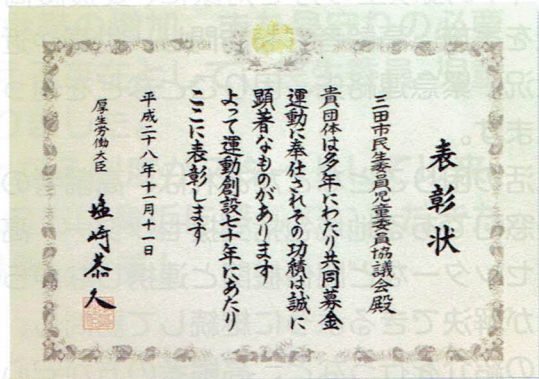 表彰状
三田市民生委員児童委員協議会殿
貴団体は多年にわたり共同募金
運動に奉仕されその功績は誠に
顕著なものがあります
よって運動創設七十年にあたり
ここに表彰します
平成二十八年十一月十一日
厚生労働大臣 塩崎恭久